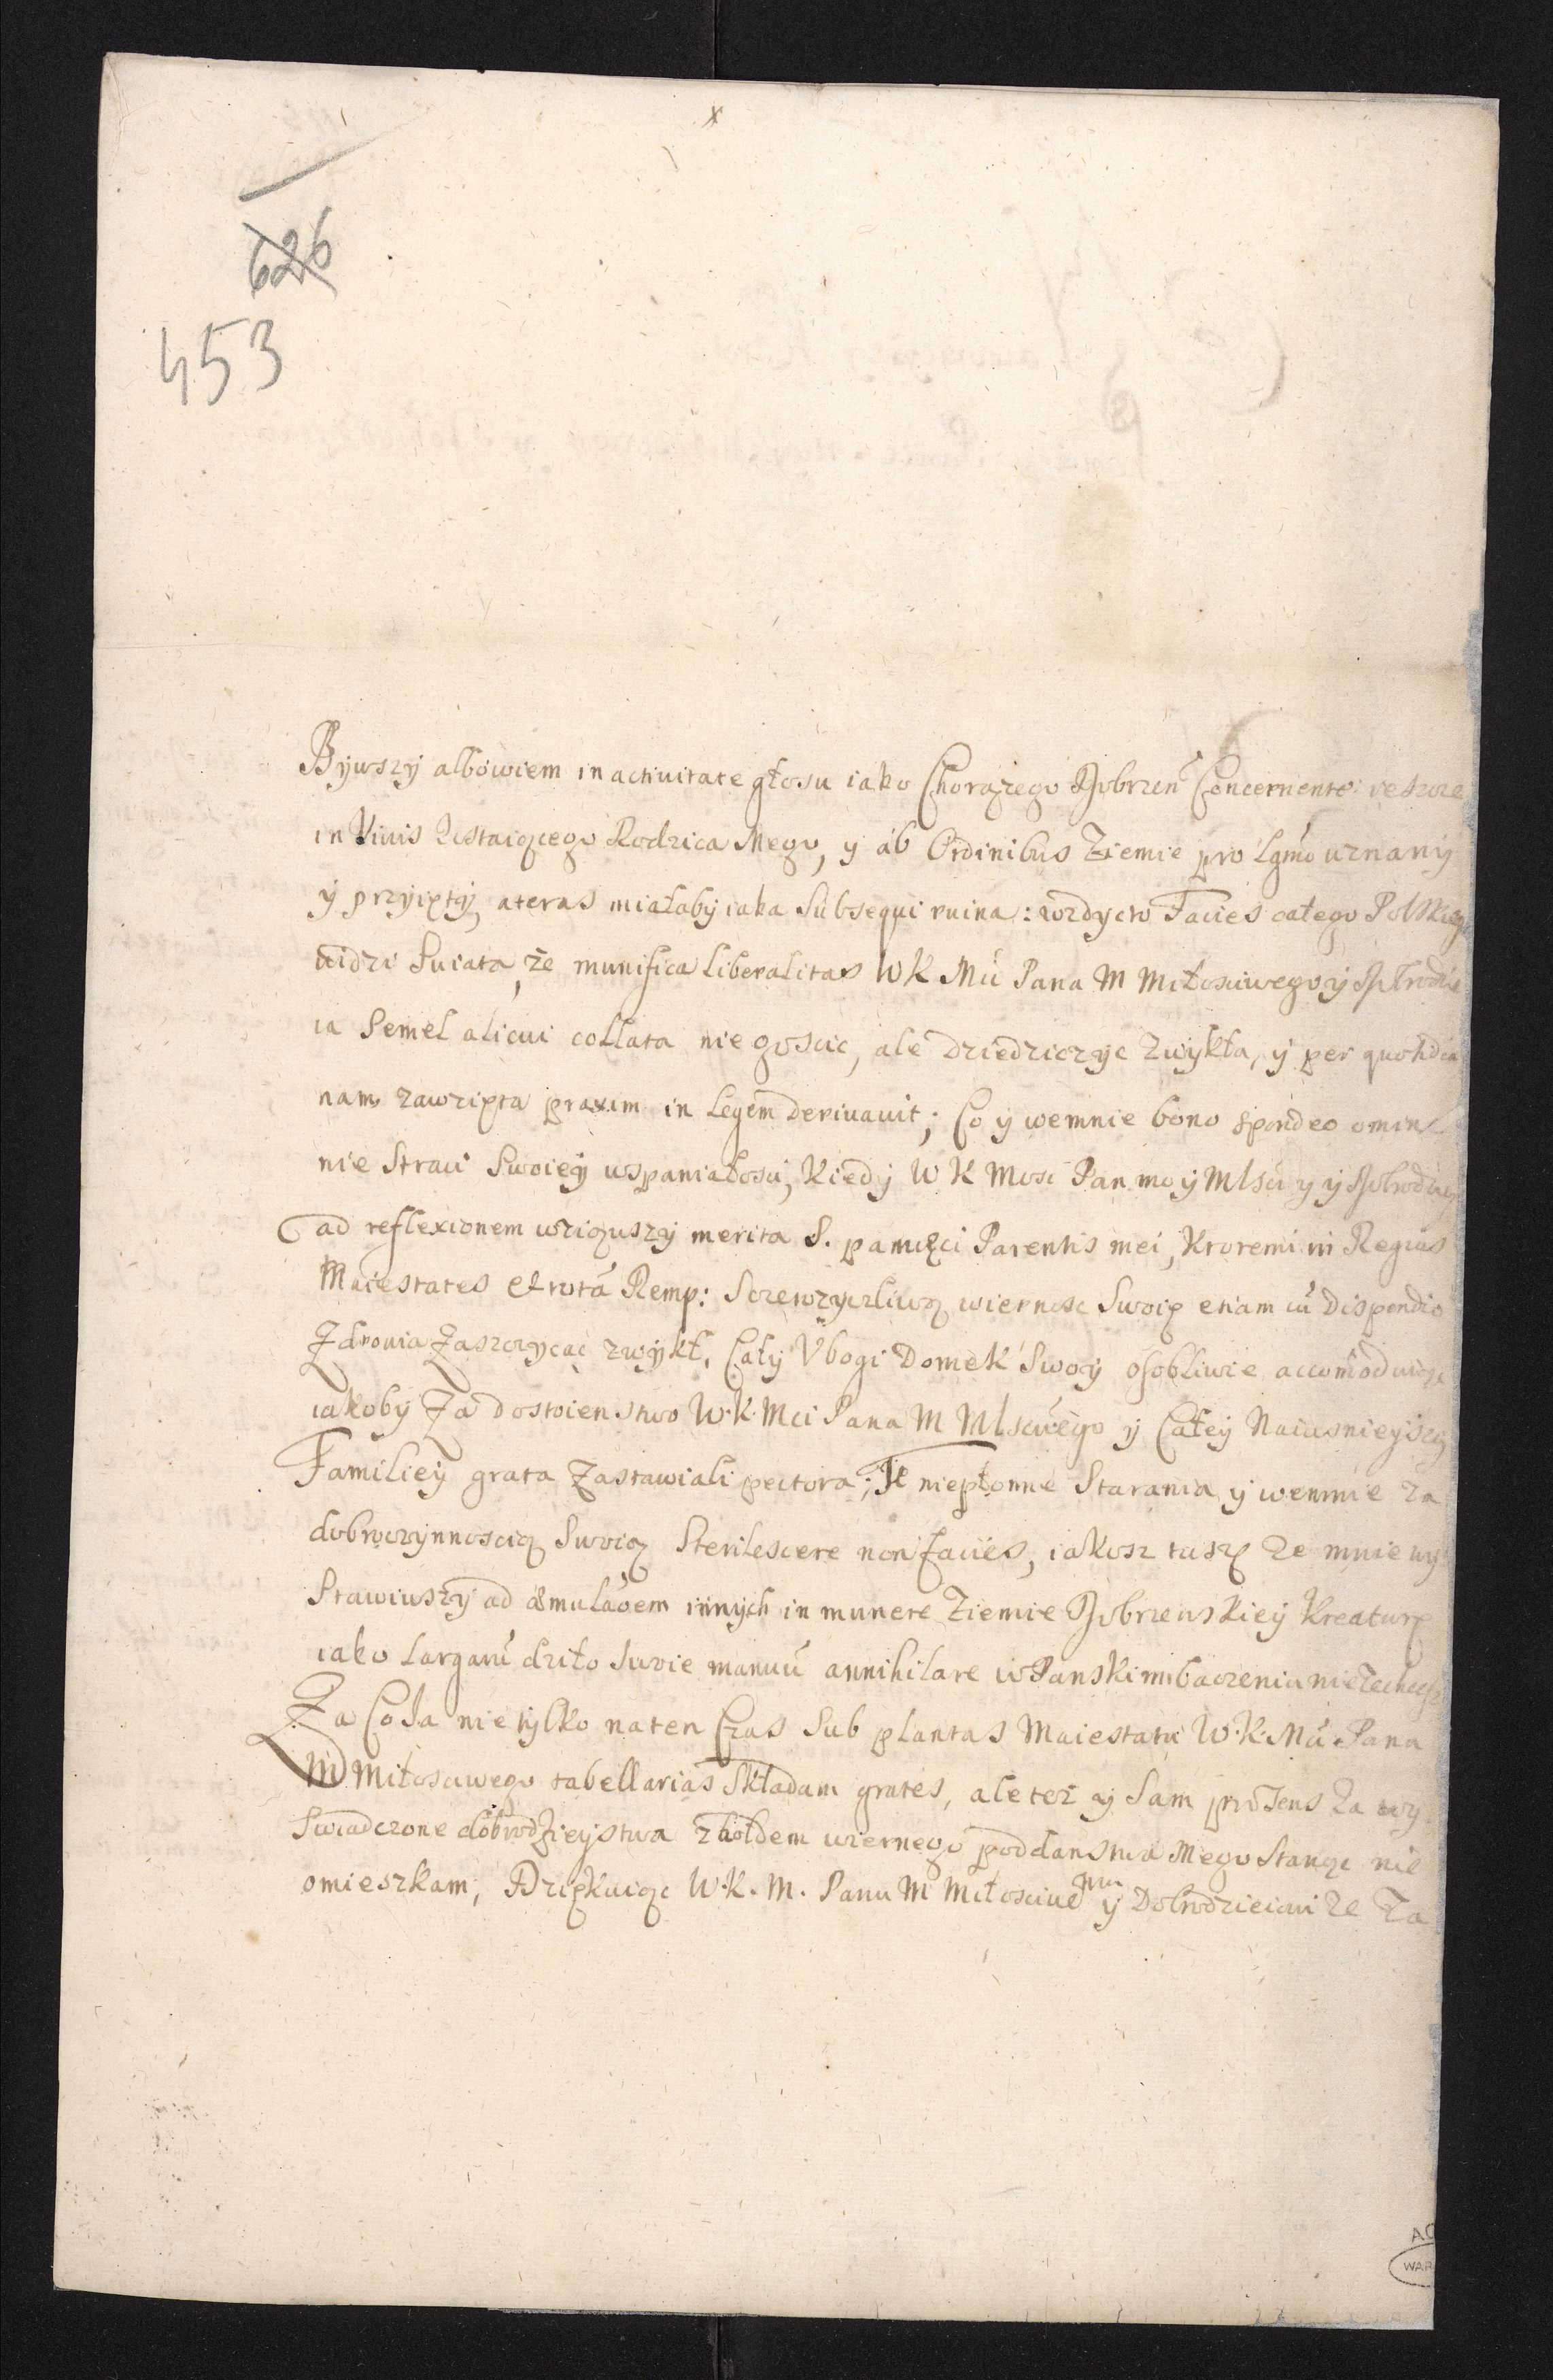 626
453
Bywszy albowiem in activitate głosu iako Chorązego Dobrzen Concernente ieszcze
in Vivis Zostaiącego Rodzica Mego, y ab Ordinibus Ziemie pro Lgmo uznany
y przyięty, a teras miałaby iaka Subsequi ruina: wzdyć to Facies całego Polskieg
widzi Swiata, że munifica Liberalitas WK Mci Pana M Miłosciwego y
ia Semel alicui collata nie goscic, ale dziedziczyc zwykła, y per quotidia
nam zawzięta praxim in Legem derivavit; Co y wemnie bono spondeo omine
nie Straci Swoiey wspaniałosci, kiedy W K Mosc Pan moy Mlsciwy y
ad reflexionem wziąwszy merita S. pamięci Parentis mei, ktoremi in Regias
Maiestates et totã Remp: Szczerzyczliwą wiernosc Swoię etiam cũ dispendio
Zdrowia Zaszczycac zwykł, Cały Vbogi Domek Swoy osobliwie accomoduiąc
iakoby Za dostoienstwo W.K.Mci Pana M Mlsciwego y Całey Naiasnieyszy
Familiey grata Zastawiali pectora; Te niepłonne Starania y wemnie Za
dobroczynnoscią Swoią Sterilescere non facies, iakosz tuszę ze mnie wy
Stawiwszy ad æmulaõem innych in munere Ziemie Dobrzenskiey Kreaturę
iako Largarũ dziło Swoie manuũ annihilare w Panskim baczeniu nie Zechcesz
Za Co Ja nie tylko na ten Czas Sub plantas Maiestatu W.K.Mci Pana
M Miłosciwego tabellarias Składam grates, ale tez y Sam præsens Za wy
Swiadczone dobrodzieystwa z hołdem wiernego poddanstwa Mego Stanąc nie
omieszkam, Dziękuiąc W.K.M. Panu M Miłosciwemu y Dobrodzieiowi ze Za